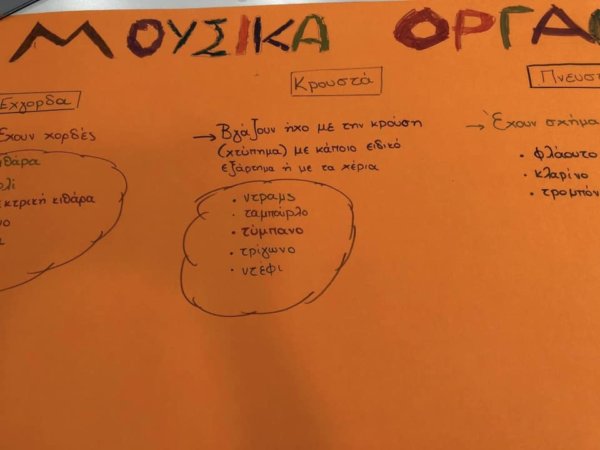 ΜΟΥΣΙΚΑ ΟΡΓΑ
Εχχορδα
Έχουν χορδές
κιθάρα
λί
εκτρική κιθάρα
νο
Κρουστά
→ Βγάζουν ήχο με την κρούση
(χτύπημα) με κάποιο ειδικό
εξάρτημα ή με τα χέρια
• ντραμς
• ταμπούρλο
• τύμπανο
• τρίγωνο
• ντέφι
Πνευστ
→ Έχουν σχήμα
• φλάουτο
• κλαρίνο
• τρομπόν